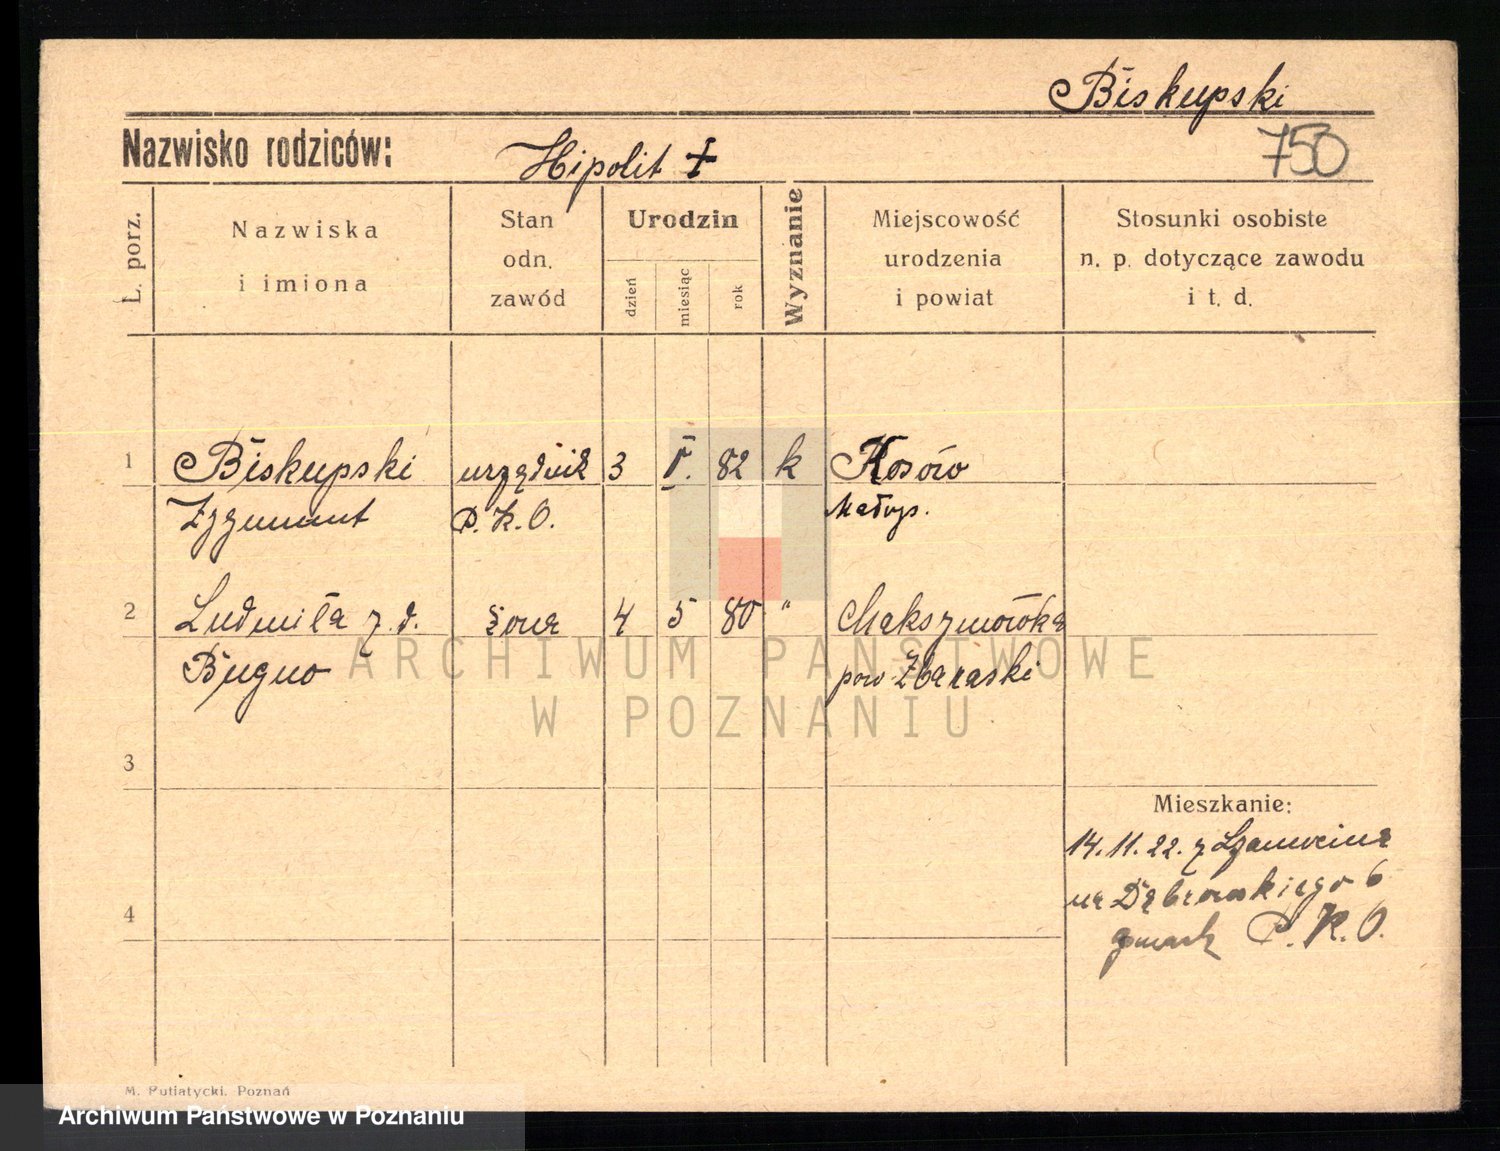 Biskupski
750
Nazwisko rodziców:
Hipolit +
L. porz.
Nazwiska
i imiona
Stan
odn.
zawód
Urodzin
dzień
miesiąc
rok
Wyznanie
Miejscowość
urodzenia
i powiat
Stosunki osobiste
n. p. dotyczące zawodu
i t. d.
1 Biskupski urzędnik 3 V. 82 k Kosów
Zygmunt P. K. O. Małop.
2 Ludmiła z d. żona 4 5 80 " Maksymówka
Bugno pow Zbaraski
ARCHIWUM PAŃSTWOWE
W POZNANIU
3
Mieszkanie:
14.11.22. z
na Dąbrowskiego 6
4
gmach P. K. O.
M. Putiatycki, Poznań
Archiwum Państwowe w Poznaniu